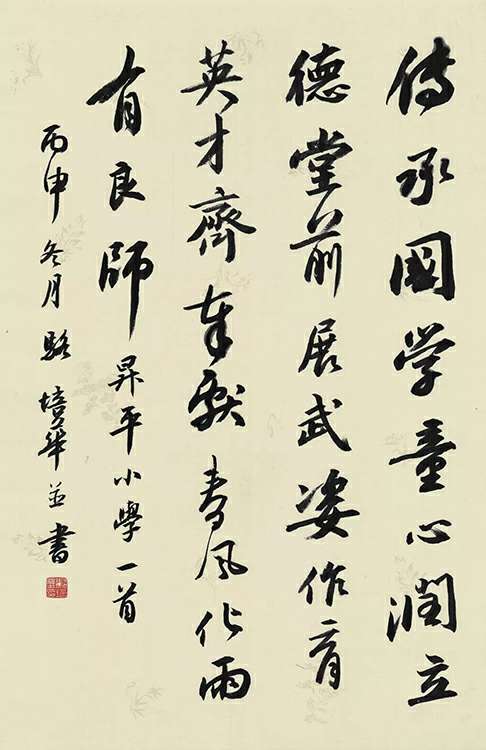 傳承國学童心潤立
德堂前展武姿作育
英才齊奉献春风化雨
有良師昇平小學一首
丙申冬月駱培華並書